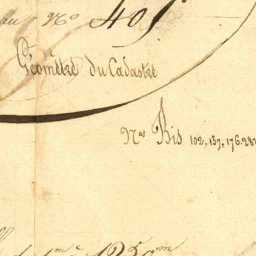 au N° 405
Géomètre du Cadastre
Nos Bis 102, 157, 176. 28